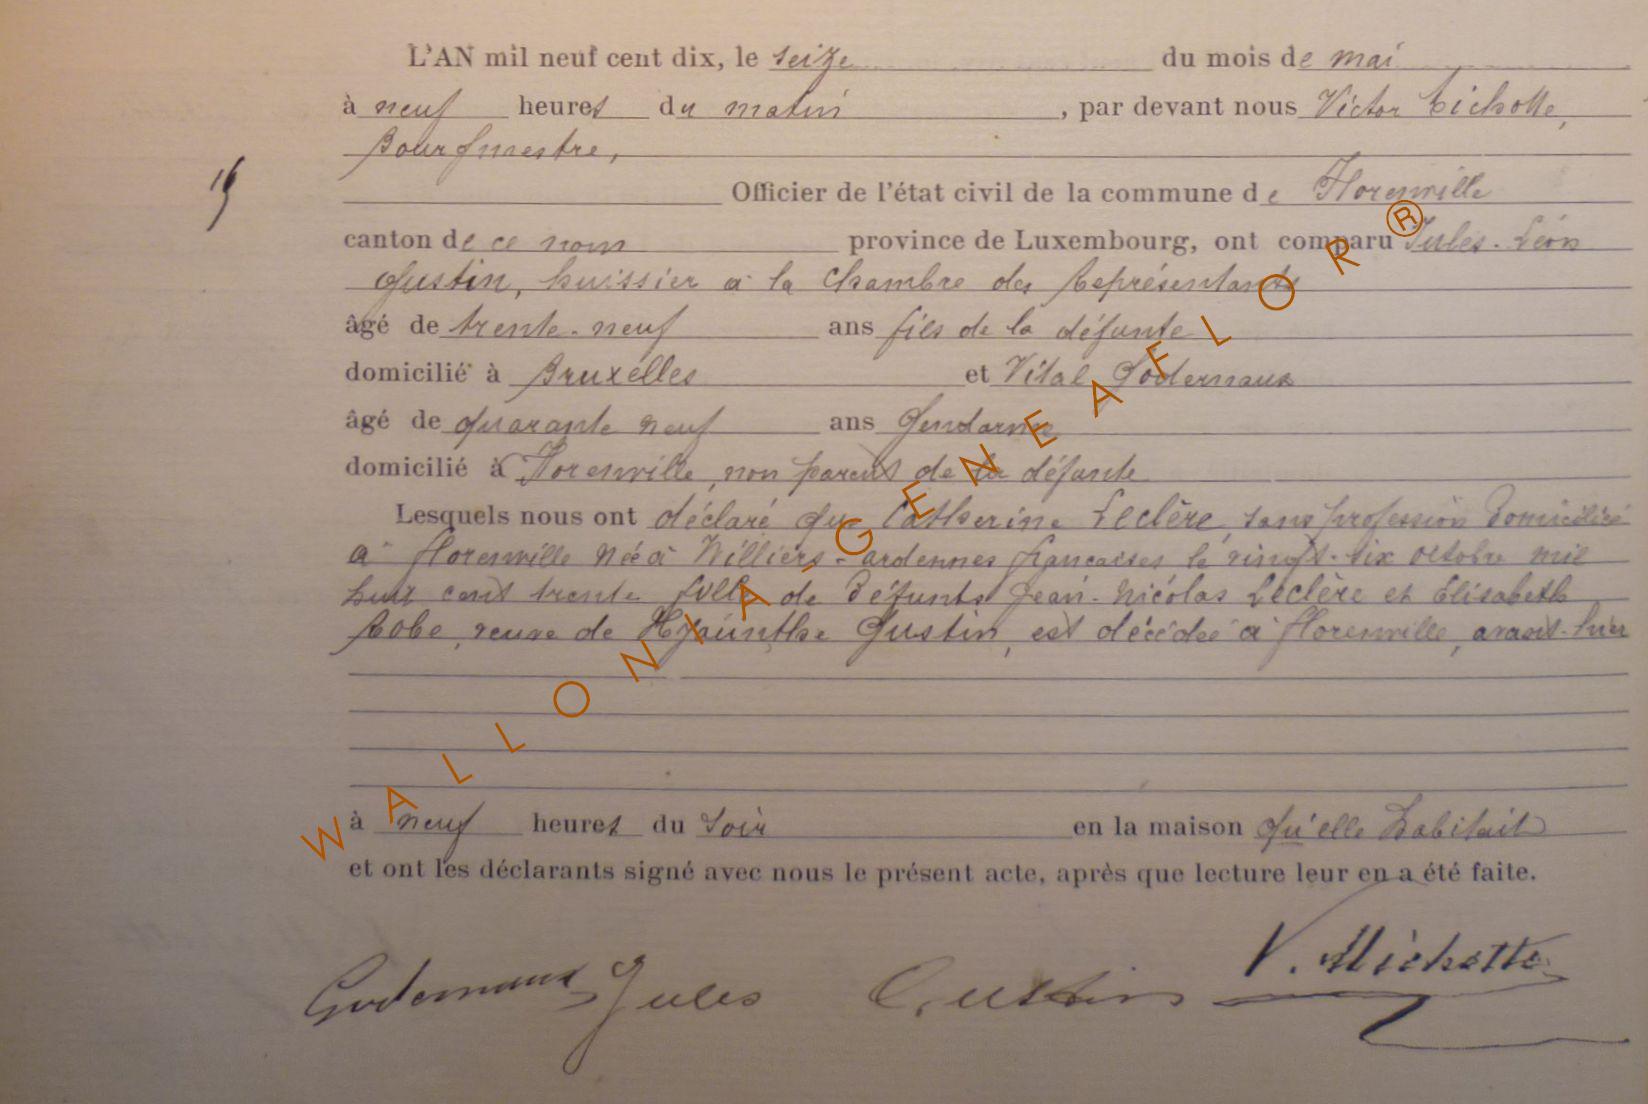 L'AN mil neuf cent dix, le seize du mois de mai
à neuf heures du matin, par devant nous Victor Michotte,
Bourgmestre,
15
Officier de l'état civil de la commune de Florenville
canton de ce nom province de Luxembourg, ont comparu Jules-Léon
Gustin, huissier à la Chambre des Représentants
âgé de trente-neuf ans fils de la défunte
domicilié à Bruxelles et Vital Godernaux
âgé de quarante neuf ans Gendarme
domicilié à Florenville, non parent de la défunte
Lesquels nous ont déclaré que Catherine Leclère, sans profession domiciliée
à Florenville née à Williers - ardennes françaises le vingt-six octobre mil
huit cent trente fille de défunts Jean-Nicolas Leclère et Elisabeth
veuve de Hyacinthe Gustin, est décédée à Florenville, avant-hier
à neuf heures du soir en la maison qu'elle habitait
et ont les déclarants signé avec nous le présent acte, après que lecture leur en a été faite.
Godernaux Jules Gustin V. Michotte
WALLONIA-GENEAFLOR®